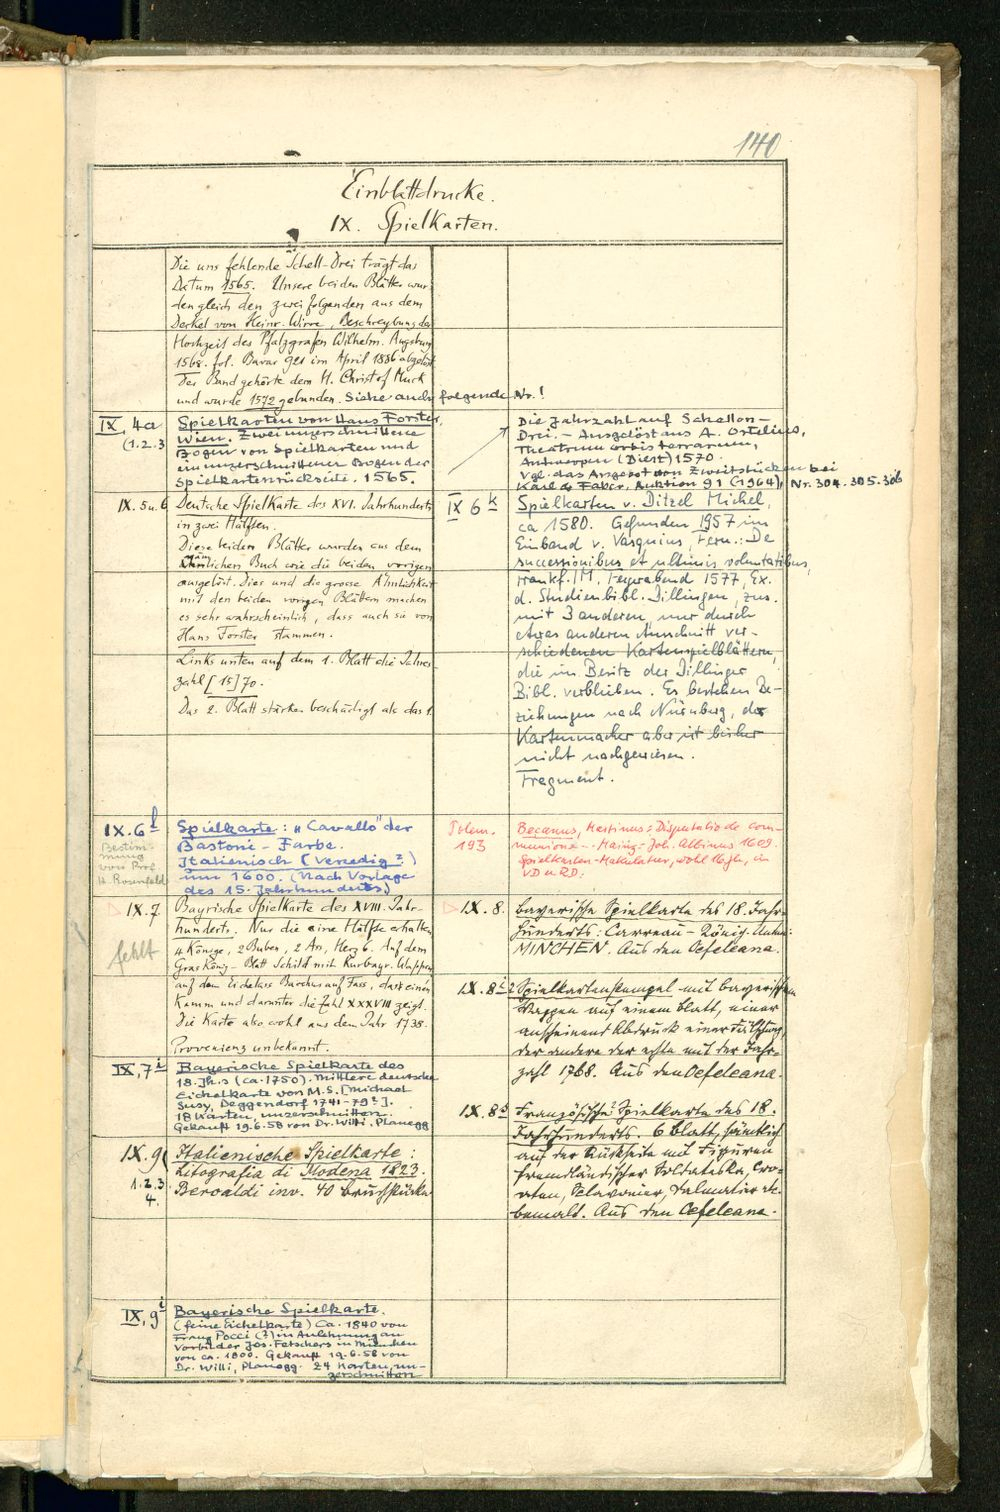 140
Einblattdrucke.
IX. Spielkarten.
Die uns fehlende Schell-Drei trägt das
Datum 1565. Unsere beiden Blätter wur
den gleich den zwei folgenden aus dem
Deckel von Heinr. Wirre, Beschreybung der
Hochzeit des Pfalzgrafen Wilhelm. Augsburg
1568. fol. Bavar 921 im April 1886 abgelöst
Der Band gehörte dem H. Christof Muck
und wurde 1572 gebunden. Siehe auch folgende Nr.!
IX, 4a
(1.2.3
Spielkarten von Hans Forster,
Wien. Zwei unzerschnittene
Bogen von Spielkarten und
ein unzerschnittener Bogen der
Spielkartenrückseite. 1565.
IX. 5 u. 6
Deutsche Spielkarte des XVI. Jahrhunderts
in zwei Hälften.
Diese beiden Blätter wurden aus dem
nämlichen Buch wie die beiden vorigen
ausgelöst. Dies und die grosse Ähnlichkeit
mit den beiden vorigen Blättern machen
es sehr wahrscheinlich, dass auch sie von
Hans Forster stammen.
Links unten auf dem 1. Blatt die Jahres-
zahl [15]70.
Das 2. Blatt stärker beschädigt als das 1.
IX.6 l
Bestim-
mung
von Prof.
H. Rosenfeld
Spielkarte: "Cavallo" der
Bastoni-Farbe.
Italienisch (Venedig?)
um 1600. (Nach Vorlage
des 15. Jahrhunderts.)
IX.7
fehlt
Bayrische Spielkarte des XVIII. Jahr-
hunderts. Nur die eine Hälfte erhalten
4 Könige, 2 Buben, 2 As, Herz 6. Auf dem
Gras König-Blatt Schild mit Kurbayr. Wappen
auf dem Eichelass Bacchus auf Fass, das einen
Kamm und darunter die Zahl XXXVIII zeigt.
Die Karte also wohl aus dem Jahr 1738.
Provenienz unbekannt.
IX, 7 i
Bayerische Spielkarte des
18. Jh.s (ca. 1750). Mittlere deutsche
Eichelkarte von M.S. [Michael
Susy, Deggendorf 1741-79?].
18 Karten, unzerschnitten.
Gekauft 19.6.58 von Dr. Willi, Planegg
IX. 9
1.2.3
4.
Italienische Spielkarte:
Litografia di Modena 1823.
Beroaldi inv. 40 Bruchstücke
IX, 9 i
Bayerische Spielkarte.
(feine Eichelkarte) Ca. 1840 von
Franz Pocci (?) in Anlehnung an
Vorbilder Jos. Fetschers in München
von ca. 1800. Gekauft 19.6.58 von
Dr. Willi, Planegg. 24 Karten, un-
zerschnitten
Die Jahrzahl auf Schellen-
Drei. - Ausgelöst aus A. Ortelius,
Theatrum orbis terrarum,
Antwerpen (Diest) 1570.
Vgl. das Angebot von Zweitstücken bei
Karl & Faber, Auktion 91 (1964), Nr. 304. 305. 306
IX 6 k
Spielkarten v. Ditzel Michel,
ca 1580. Gefunden 1957 im
Einband v. Vasquius, Fern.: De
successionibus et ultimis voluntatibus,
Frankf./M, Feyrabend 1577, Ex.
d. Studienbibl. Dillingen, zus.
mit 3 anderen, nur durch
etwas anderen Anschnitt ver-
schiedenen Kartenspielblättern,
die im Besitz der Dillinger
Bibl. verblieben. Es bestehen Be-
ziehungen nach Nürnberg, der
Kartenmacher aber ist bisher
nicht nachgewiesen.
Fragment.
Polem.
193
Becanus, Martinus: Disputatio de com-
munione - Mainz: Joh. Albinus 1609.
Spielkarten-Makulatur, wohl 16 Jh., in
VD u RD.
IX. 8.
Bayerische Spielkarte des 18. Jahr-
hunderts: Carreau-König.
MINCHEN. Aus den Oefeleana.
IX. 8
Spielkartenstempel mit bayerischem
Wappen auf einem Blatt, einer
anscheinend Abdruck einer Fälschung,
der andere der echte mit der Jahr-
zahl 1768. Aus den Oefeleana.
IX. 8 b
Französische Spielkarte des 18.
Jahrhunderts. 6 Blatt, sämtlich
auf der Rückseite mit Figuren
fremdländischer Soldateska, Cro-
aten, Sclavonier, Dalmatier etc.
bemalt. Aus den Oefeleana.